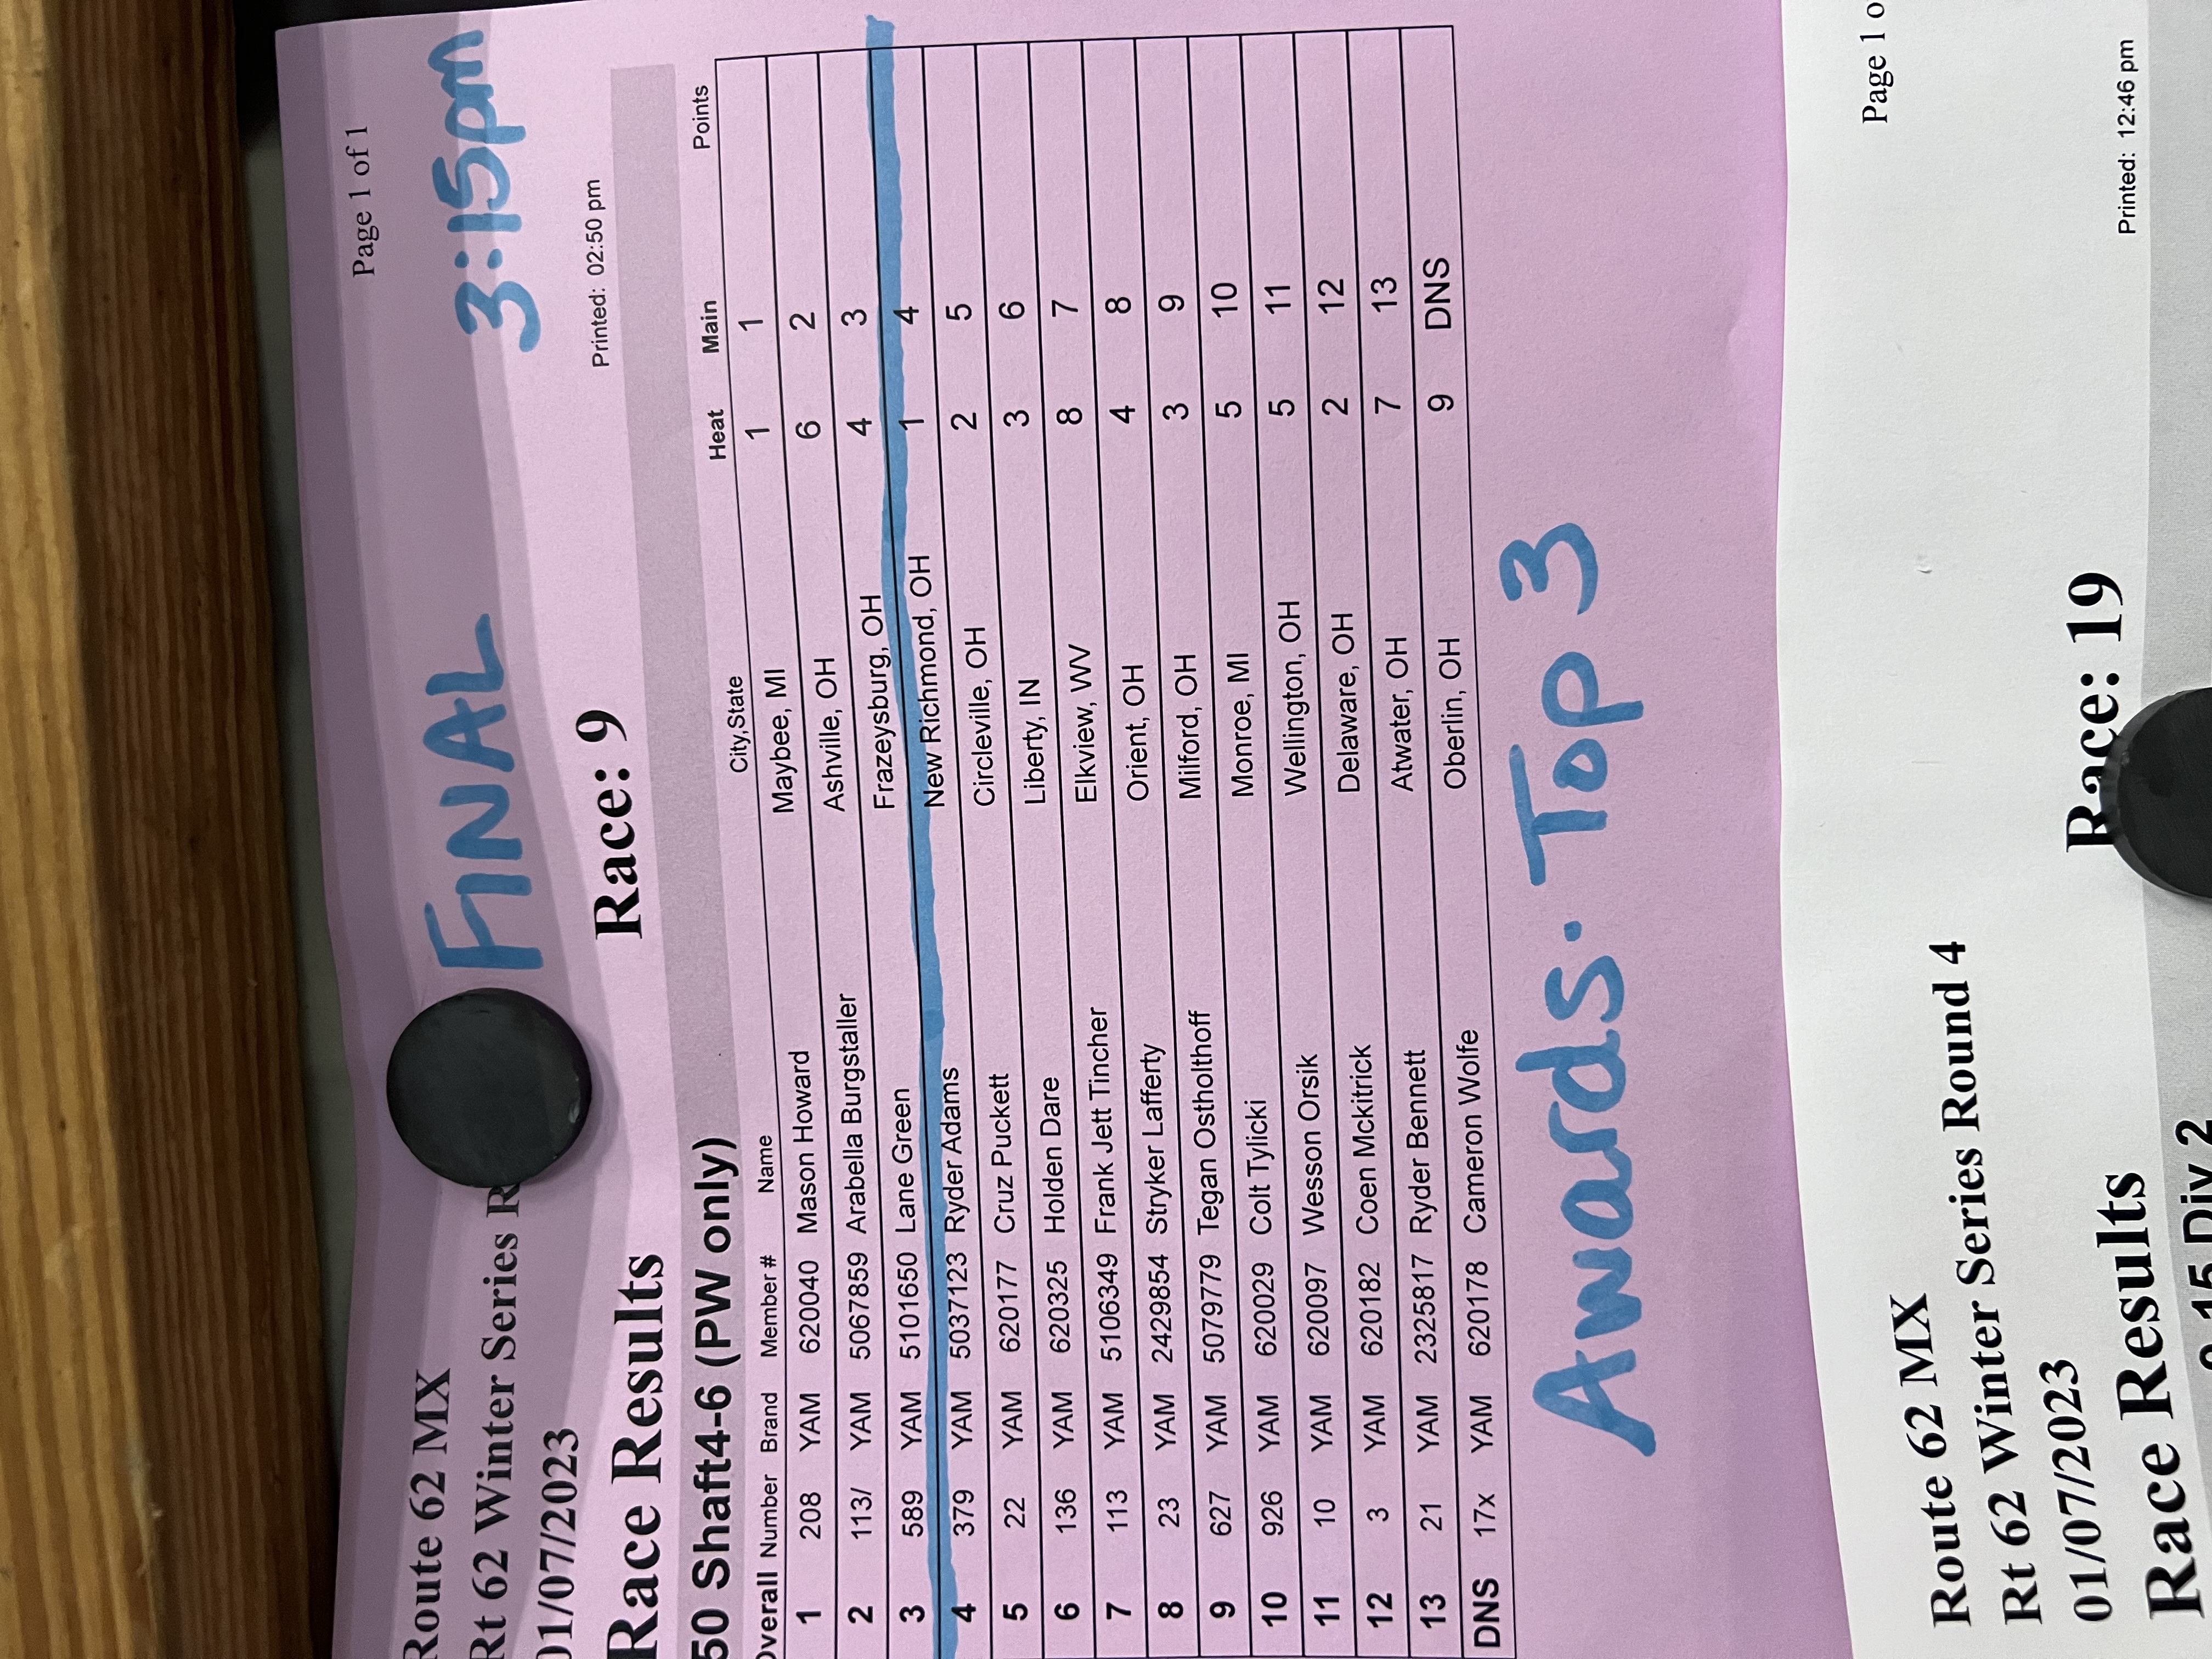 Page 1 of 1
Route 62 MX
FINAL 3:15pm
Rt 62 Winter Series
01/07/2023
Printed: 02:50 pm
Race Results Race: 9
50 Shaft4-6 (PW only)
Overall Number Brand Member # Name City,State Heat Main Points
1 208 YAM 620040 Mason Howard Maybee, MI 1 1
2 113/ YAM 5067859 Arabella Burgstaller Ashville, OH 6 2
3 589 YAM 5101650 Lane Green Frazeysburg, OH 4 3
4 379 YAM 5037123 Ryder Adams New Richmond, OH 1 4
5 22 YAM 620177 Cruz Puckett Circleville, OH 2 5
6 136 YAM 620325 Holden Dare Liberty, IN 3 6
7 113 YAM 5106349 Frank Jett Tincher Elkview, WV 8 7
8 23 YAM 2429854 Stryker Lafferty Orient, OH 4 8
9 627 YAM 5079779 Tegan Ostholthoff Milford, OH 3 9
10 926 YAM 620029 Colt Tylicki Monroe, MI 5 10
11 10 YAM 620097 Wesson Orsik Wellington, OH 5 11
12 3 YAM 620182 Coen Mckitrick Delaware, OH 2 12
13 21 YAM 2325817 Ryder Bennett Atwater, OH 7 13
DNS 17x YAM 620178 Cameron Wolfe Oberlin, OH 9 DNS
Awards. Top 3
Page 1 o
Route 62 MX
Rt 62 Winter Series Round 4
01/07/2023
Printed: 12:46 pm
Race Results Race: 19
15 Div 2